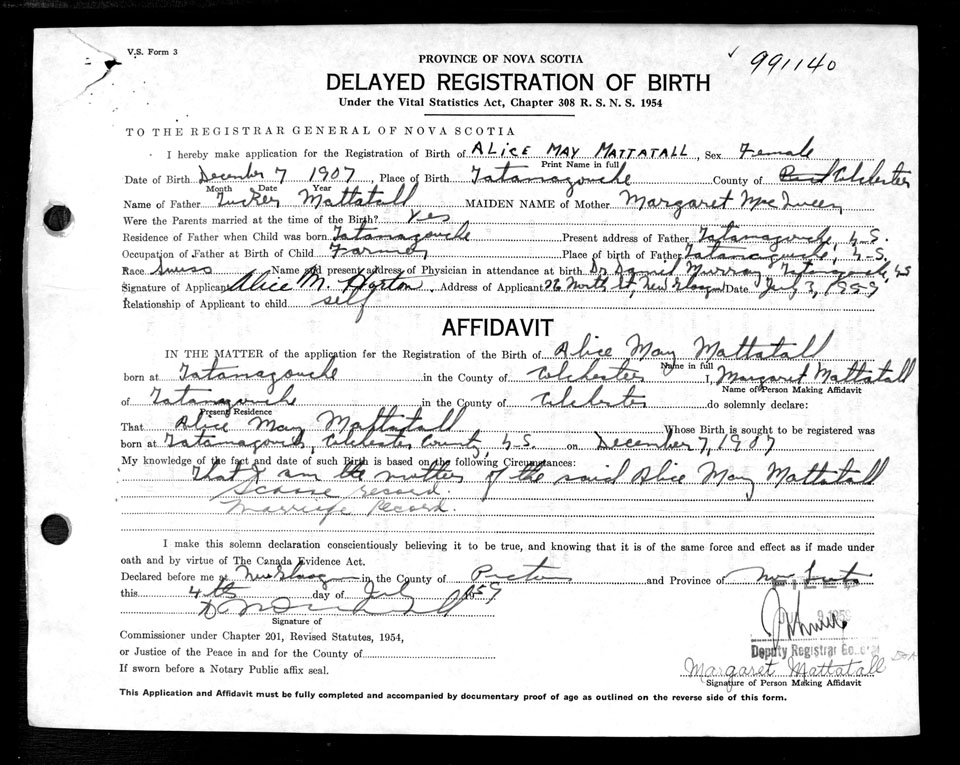 V.S. Form 3
991140
PROVINCE OF NOVA SCOTIA
DELAYED REGISTRATION OF BIRTH
Under the Vital Statistics Act, Chapter 308 R. S. N. S. 1954
TO THE REGISTRAR GENERAL OF NOVA SCOTIA
I hereby make application for the Registration of Birth of ALICE MAY MATTATALL, Sex Female
Print Name in full
Date of Birth December 7 1907, Place of Birth Tatamagouche County of Colchester
Month Date Year
Name of Father Tucker Mattatall MAIDEN NAME of Mother Margaret MacQueen
Were the Parents married at the time of the Birth? Yes
Residence of Father when Child was born Tatamagouche Present address of Father Tatamagouche, N.S.
Occupation of Father at Birth of Child Farmer Place of birth of Father Tatamagouche, N.S.
Race Swiss Name and present address of Physician in attendance at birth Dr Murray Tatamagouche, NS
Signature of Applicant Alice M. Address of Applicant 26 North St, New Glasgow Date July 3, 1959
Relationship of Applicant to child self
AFFIDAVIT
IN THE MATTER of the application for the Registration of the Birth of Alice May Mattatall
Name in full
born at Tatamagouche in the County of Colchester I, Margaret Mattatall
Name of Person Making Affidavit
of Tatamagouche in the County of Colchester do solemnly declare:
Present Residence
That Alice May Mattatall Whose Birth is sought to be registered was
born at Tatamagouche, Colchester County, N.S. on December 7, 1907
My knowledge of the fact and date of such Birth is based on the following Circumstances:
That I am the mother of the said Alice May Mattatall
record.
Marriage Record.
I make this solemn declaration conscientiously believing it to be true, and knowing that it is of the same force and effect as if made under
oath and by virtue of The Canada Evidence Act.
Declared before me at New Glasgow in the County of Pictou and Province of Nova Scotia
this 4th day of July 1959
Signature of
Commissioner under Chapter 201, Revised Statutes, 1954,
or Justice of the Peace in and for the County of
If sworn before a Notary Public affix seal.
Deputy Registrar General
Margaret Mattatall
Signature of Person Making Affidavit
This Application and Affidavit must be fully completed and accompanied by documentary proof of age as outlined on the reverse side of this form.